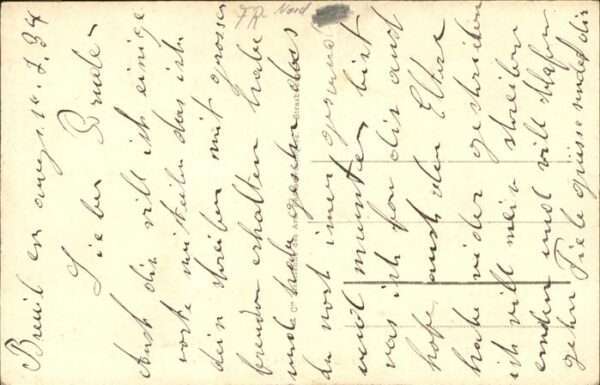 Breuil en auge s. 14. 7. 34
Lieber Bruder
Auch dir will ich einige
worte mitteilen das ich
dein schreiben mit grosser
freuden erhalten habe
und habe gesehn das
du noch imer gesund
und munter bist
was ich fon dir und
hofe auch den Eltern
habe wider geschrieben
ich will mein schreiben
enden und will schlafen
gehn Fiele grüsse sendet dir
FR Nord